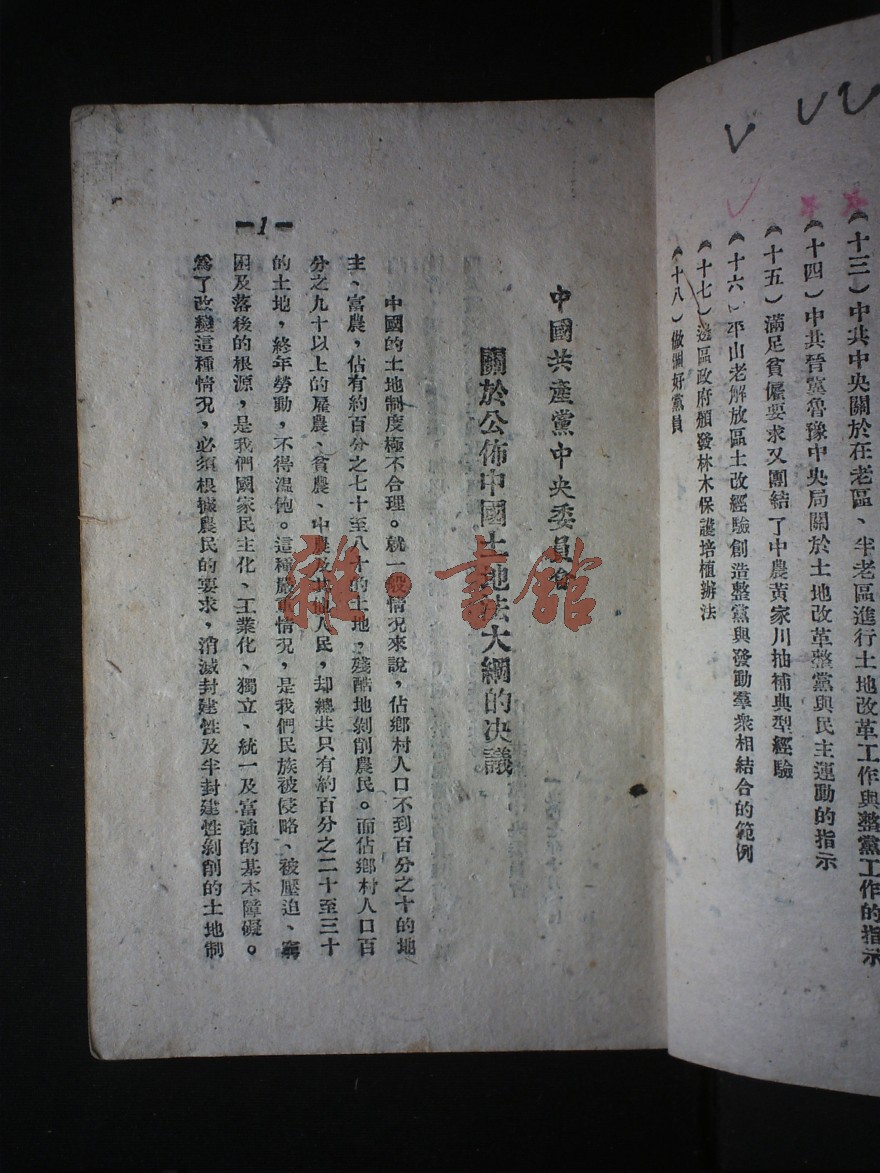 (十三)中共中央關於在老區、半老區進行土地改革工作與整黨工作的指示
(十四)中共晉冀魯豫中央局關於土地改革整黨與民主運動的指示
(十五)滿足貧僱要求又團結了中農黃家川抽補典型經驗
(十六)平山老解放區土改經驗創造整黨與發動羣衆相結合的範例
(十七)邊區政府頒發林木保護培植辦法
(十八)做個好黨員
中國共產黨中央委員會
關於公佈中國土地法大綱的决議
中國的土地制度極不合理。就一般情况來說,佔鄉村人口不到百分之十的地
主、富農,佔有約百分之七十至八十的土地,殘酷地剝削農民。而佔鄉村人口百
分之九十以上的雇農、貧農、中農及其他人民,却總共只有約百分之二十至三十
的土地,終年勞動,不得溫飽。這種嚴重情况,是我們民族被侵略、被壓迫、窮
困及落後的根源,是我們國家民主化、工業化、獨立、統一及富強的基本障礙。
爲了改變這種情况,必須根據農民的要求,消滅封建性及半封建性剝削的土地制
-1-
雜·書館